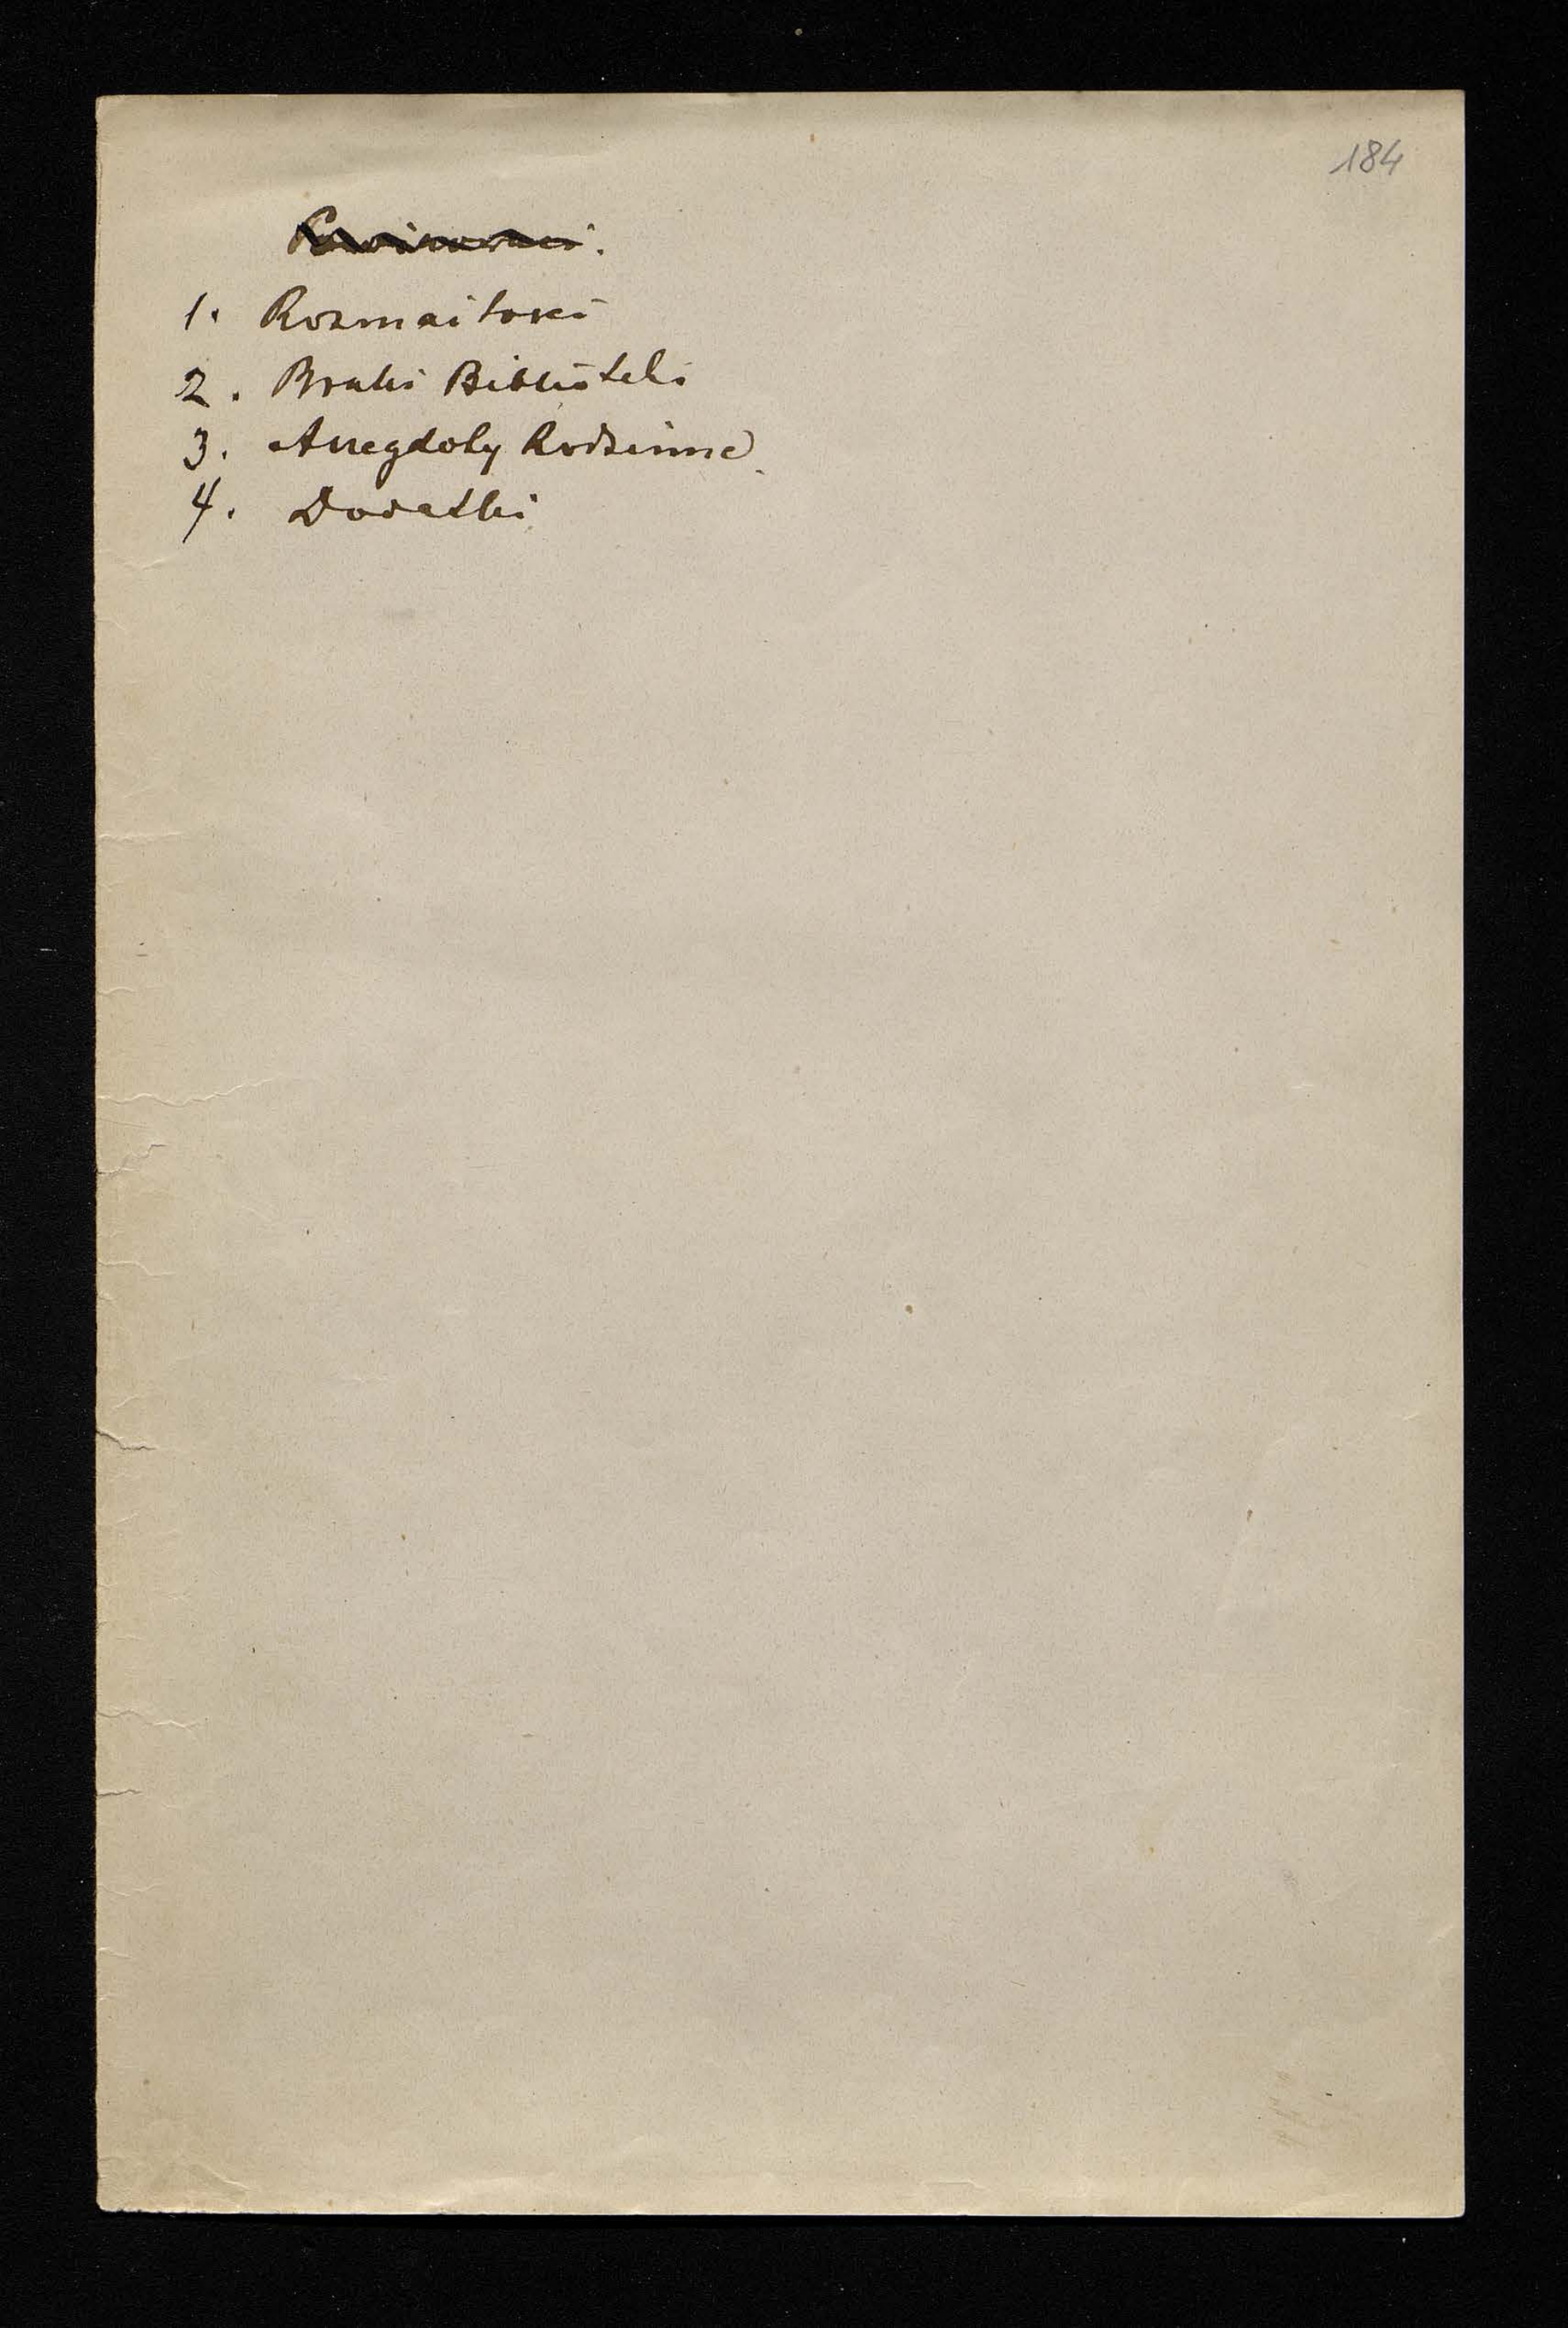 184
1. Rozmaitości
2. Braki Biblioteki
3. Anegdoty Rodzinne
4. Dodatki